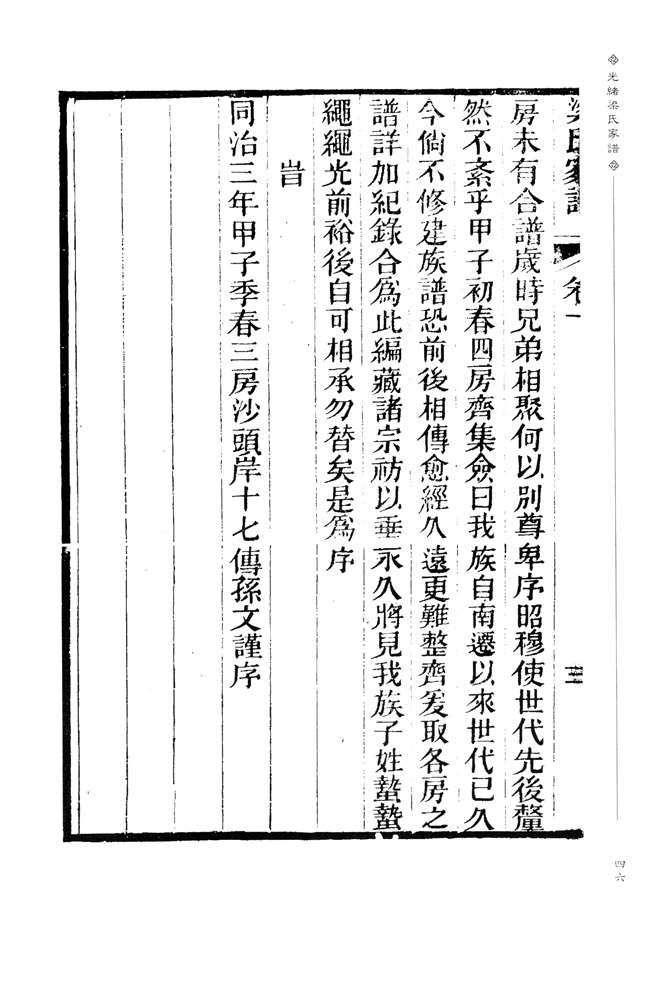 光緒梁氏家譜
梁氏家譜 卷一
房未有合譜歲時兄弟相聚何以別尊卑序昭穆使世代先後釐
然不紊乎甲子初春四房齊集僉曰我族自南遷以來世代已久
今倘不修建族譜恐前後相傳愈經久遠更難整齊爰取各房之
譜詳加紀錄合爲此編藏諸宗祊以垂永久將見我族子姓蟄蟄
繩繩光前裕後自可相承勿替矣是爲序
旹
同治三年甲子季春三房沙頭岸十七傳孫文謹序
四六